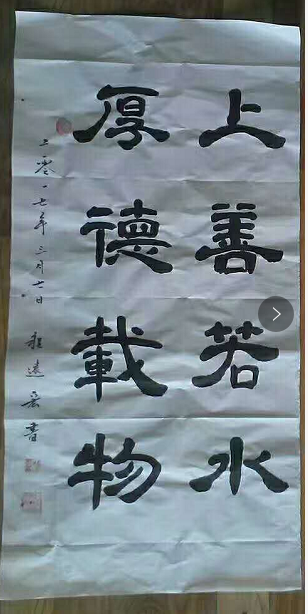 上善若水
厚德載物
二零一七年三月七日
程遠
書